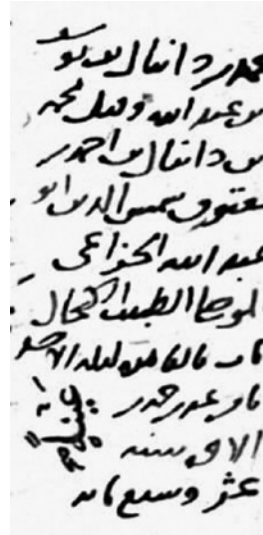 محمد بن دانيال بن يو
بن عبد الله وقيل محمد
بن دانيال بن احمد بن
معتوق شمس الدين ابو
عبد الله الخزاعي
الطبيب الكحال
مات بالقاهره ليله الاحد
ثامن عشر
سنه
عشر وسبع مايه